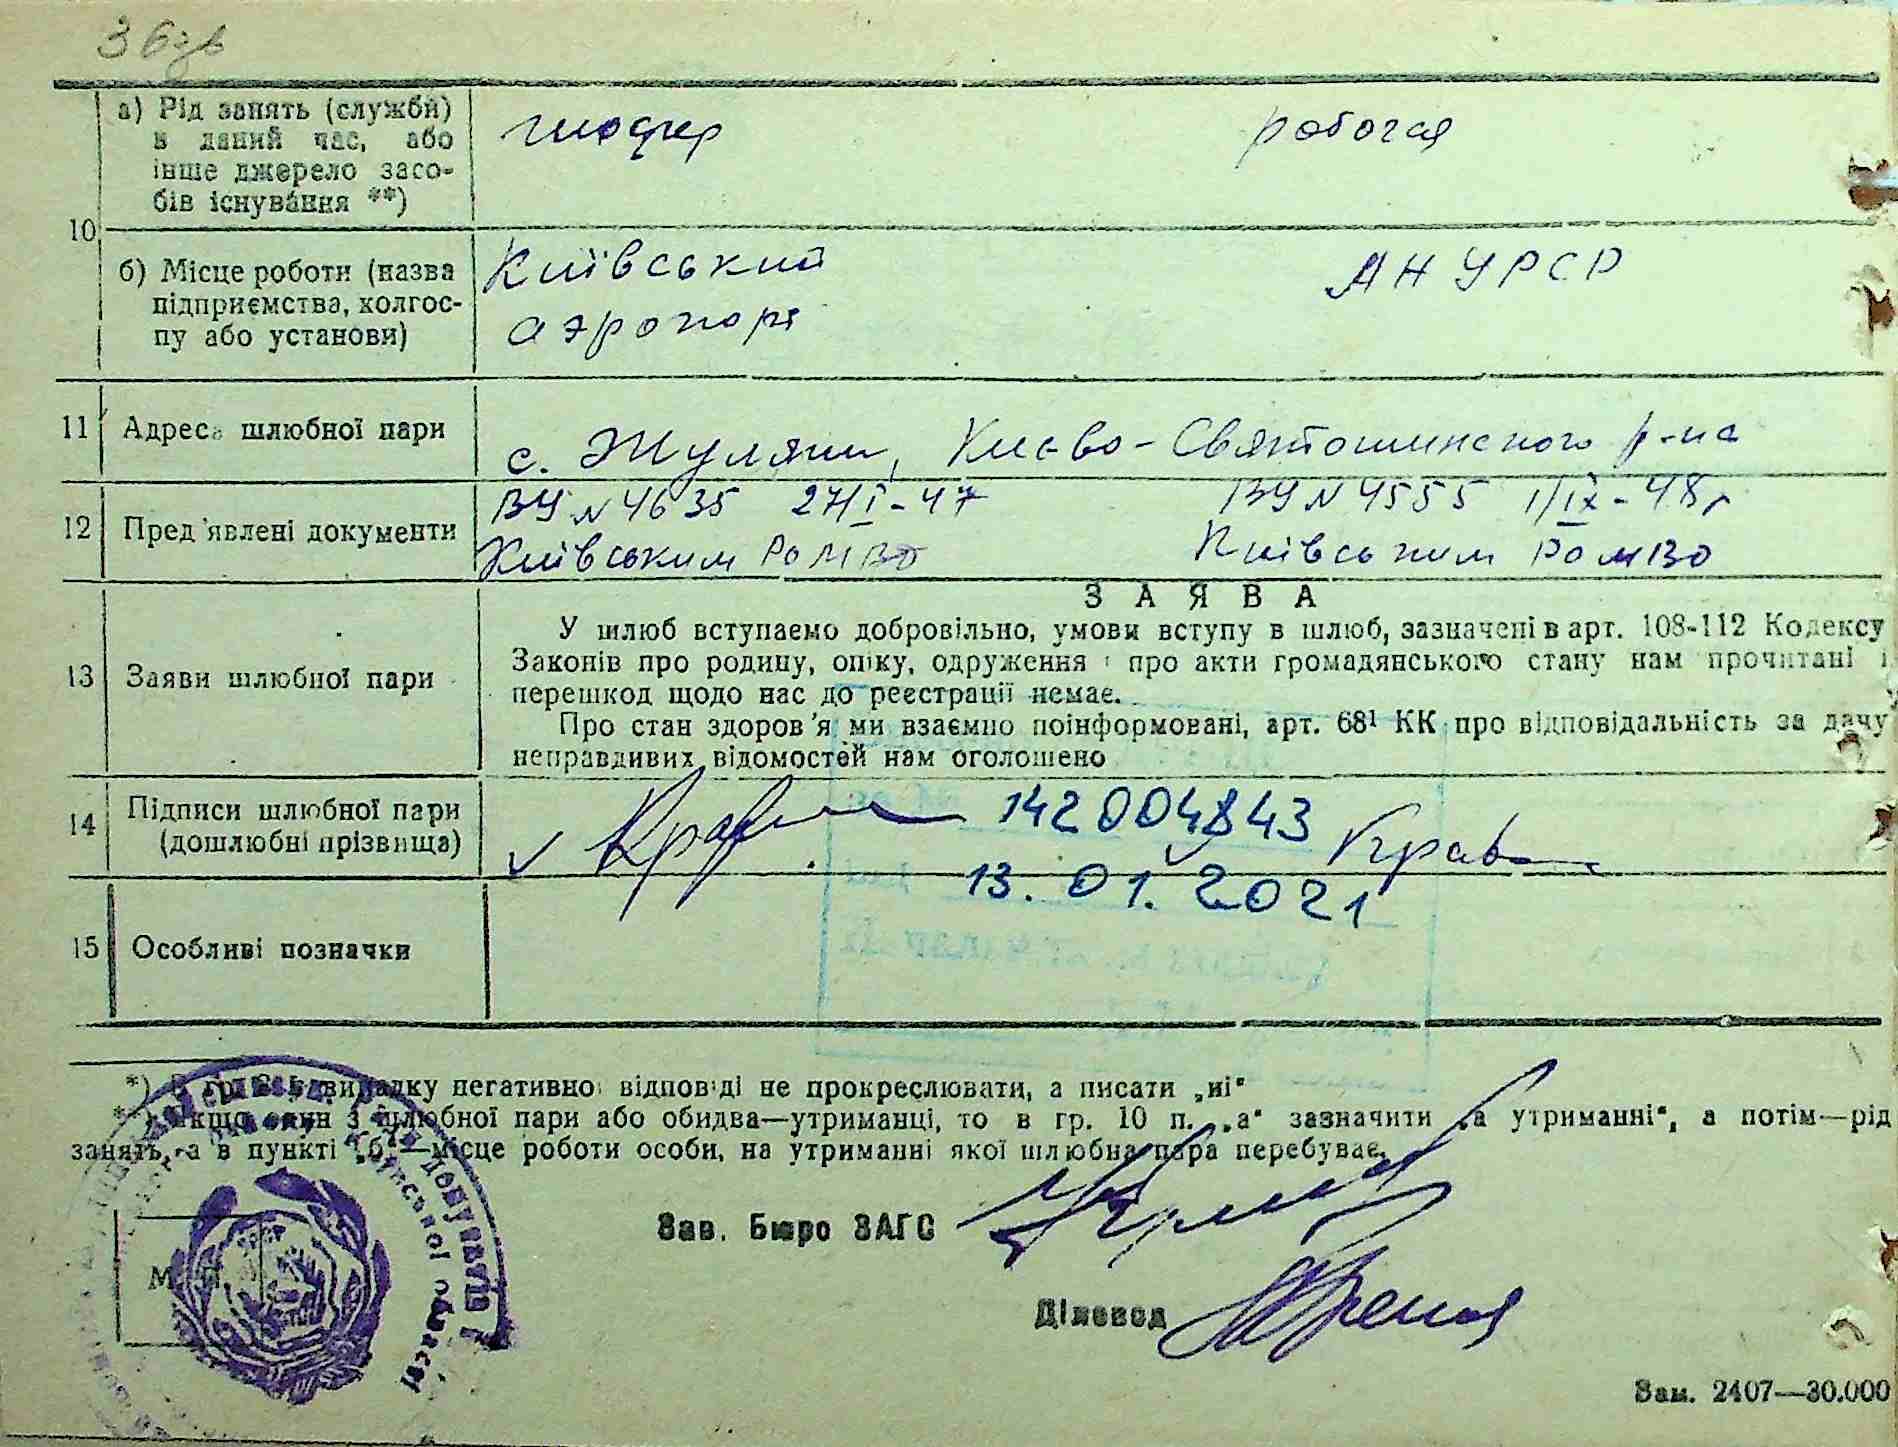 36зв
а) Рід занять (служби) шофер робочая
в даний час, або
інше джерело засо-
бів існування **)
10
б) Місце роботи (назва Київський АН УРСР
підприємства, колгос- аэропорт
пу або установи)
11 Адреса шлюбної пари с. Жуляни, Києво-Святошинського р-на
12 Пред'явлені документи ВУ N 4635 27/I-47 ВУ N 4555 1/IX-48г
Київським РОМВД Київським РОМВД
ЗАЯВА
13 Заяви шлюбної пари
У шлюб вступаемо добровільно, умови вступу в шлюб, зазначені в арт. 108-112 Кодексу
Законів про родину, опіку, одруження і про акти громадянського стану нам прочитані і
перешкод щодо нас до реєстрації немає.
Про стан здоров'я ми взаємно поінформовані, арт. 68¹ КК про відповідальність за дачу
неправдивих відомостей нам оголошено
14 Підписи шлюбної пари 142004843
(дошлюбні прізвища)
13.01.2021
15 Особливі позначки
*) В гр. випадку негативної відповіді не прокреслювати, а писати „ні"
Якщо один з шлюбної пари або обидва—утриманці, то в гр. 10 п. „а" зазначити „а утриманні", а потім—рід
занять, а в пункті „б"—місце роботи особи, на утриманні якої шлюбна пара перебуває.
Зав. Бюро ЗАГС
М.
Діловод
Зам. 2407—30.000